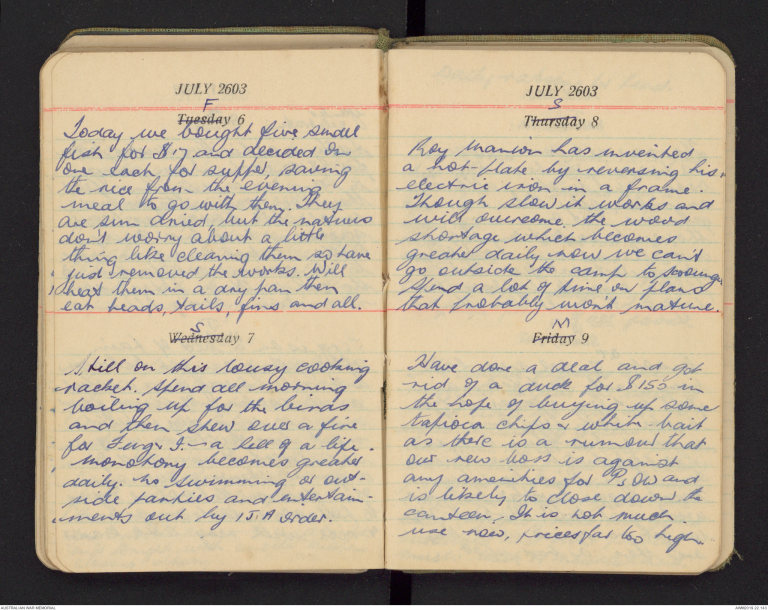 JULY 2603
F
Tuesday 6
Today we bought five small
fish for $17 and decided on
one each for supper, saving
the rice from the evening
meal to go with them. They
are sun dried, but the natives
don't worry about a little
thing like cleaning them so have
just removed the works. Will
heat them in a dry pan then
eat heads, tails, fins and all.
S
Wednesday 7
Still on this lousy cooking
racket. Spend all morning
boiling up for the birds
and then stew over a fire
for I. - a hell of a life.
Monotony becomes greater
daily. No swimming or out-
side parties and entertain-
ments out by I.J.A order.
JULY 2603
S
Thursday 8
Roy Manson has invented
a hot-plate by reversing his
electric iron in a frame.
Though slow it works and
will overcome the wood
shortage which becomes
greater daily now we can't
go outside the camp to scrounge
Spend a lot of time on plans
that probably won't mature.
M
Friday 9
Have done a deal and got
rid of a duck for $15 in
the hope of buying up some
tapioca chips & white bait
as there is a rumour that
our new boss is against
any amenities for PsOW and
is likely to close down the
canteen. It is not much
use now, prices far too high.
AUSTRALIAN WAR MEMORIAL